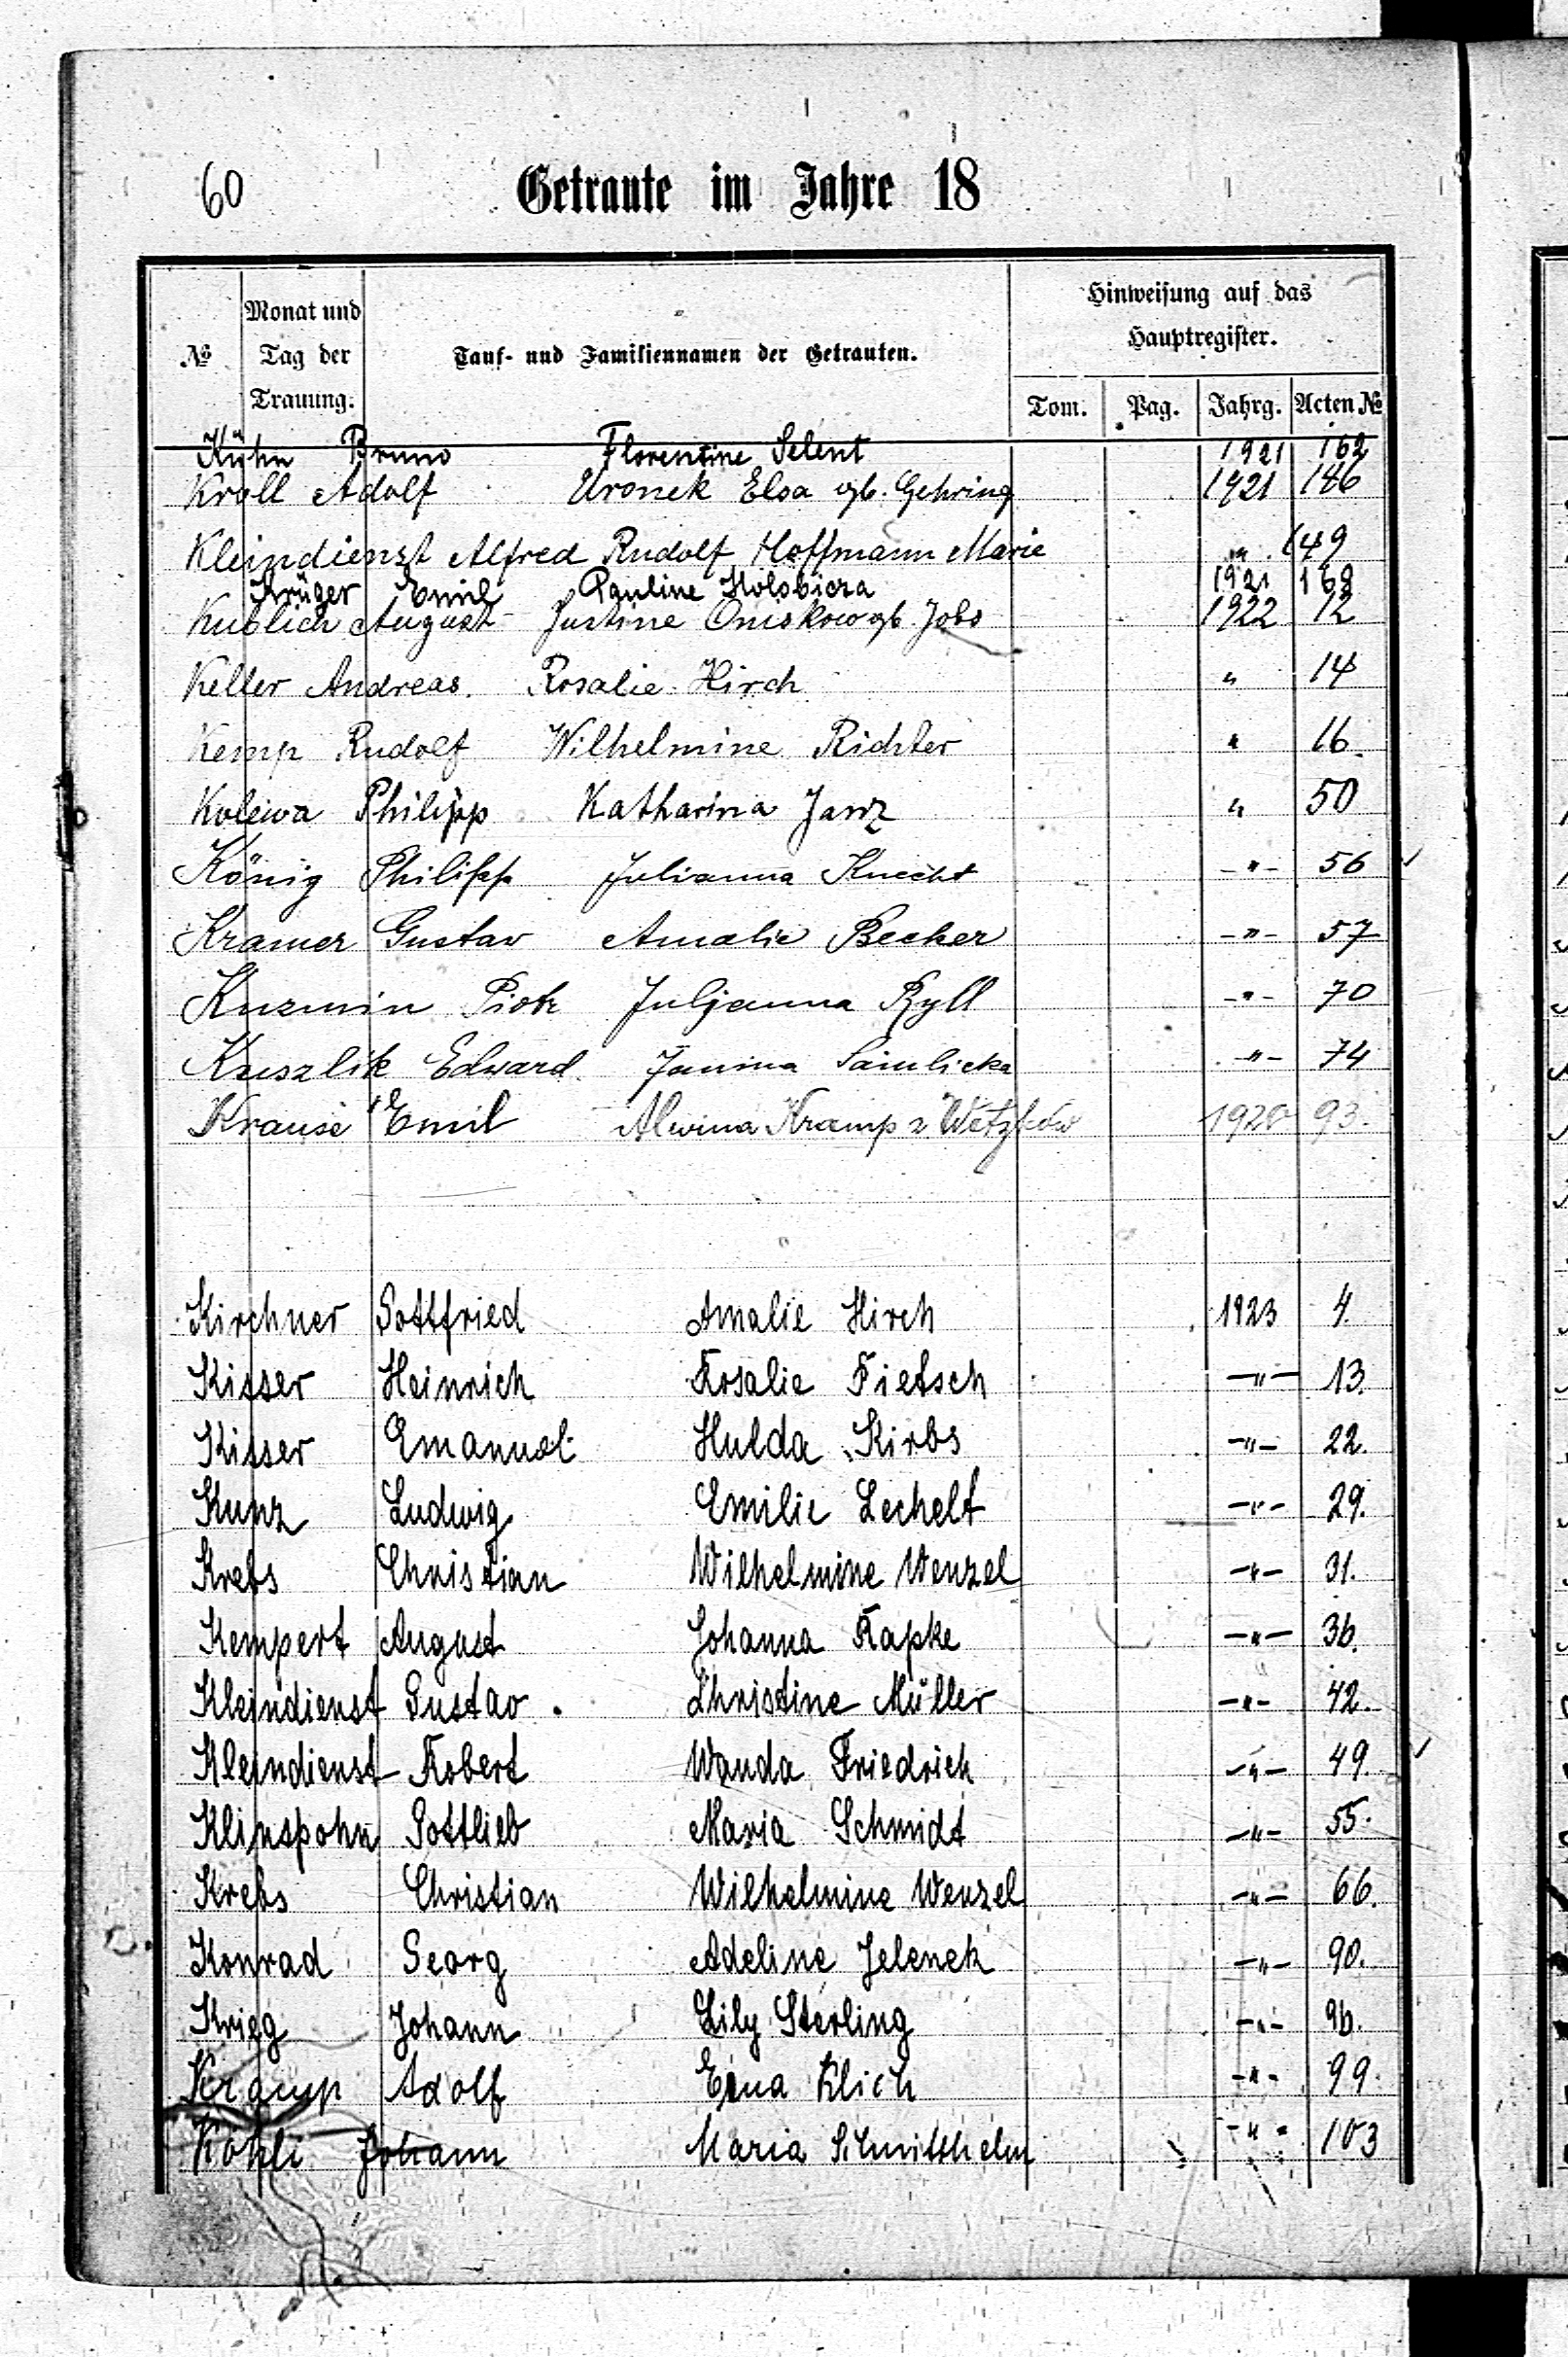 60
Getraute im Jahre 18
№ Monat und Tag der Trauung. Tauf- und Familiennamen der Getrauten. Hinweisung auf das Hauptregister.
Tom. Pag. Jahrg. Acten №
Kühn Bruno Florentine Selent 1921 162
Kroll Adolf Uronek Elsa gb. Gehring 1921 186
Kleindienst Alfred Rudolf Hoffmann Marie " 149
Krüger Emil Pauline Holobicza 1921 168
Kublich August Justine Oniskow gb. Jobs 1922 12
Keller Andreas. Rosalie Hirch " 14
Kemp Rudolf Wilhelmine Richter " 16.
Kolewa Philipp Katharina Janz " 50
König Philipp Julianna Knecht -"- 56
Kramer Gustav Amalie Becker -"- 57
Kuzmin Piotr Juljanna Ryll -"- 70
Kuszlik Edward Janina -"- 74
Krause Emil Alwina Kramp z 1920 93.
Kirchner Gottfried Amalie Hirch 1923 4.
Kisser Heinrich Rosalie Fietsch -"- 13.
Kisser Emanuel Hulda Kirbs -"- 22.
Kunz Ludwig Emilie Lechelt -"- 29.
Krebs Christian Wilhelmine Wenzel -"- 31.
Kempert August Johanna Rapke -"- 36.
Kleindienst Gustav. Christine Müller -"- 42.
Kleindienst Robert Wanda Friedrich -"- 49.
Klinspohn Gottlieb Maria Schmidt -"- 55.
Krebs Christian Wilhelmine Wenzel -"- 66.
Konrad Georg Adeline Jelenek -"- 90.
Krieg Johann Lily Sterling -"- 96.
Kramp Adolf Erna Klich -"- 99.
Köhli Johann Maria Schmitthelm -"- 103